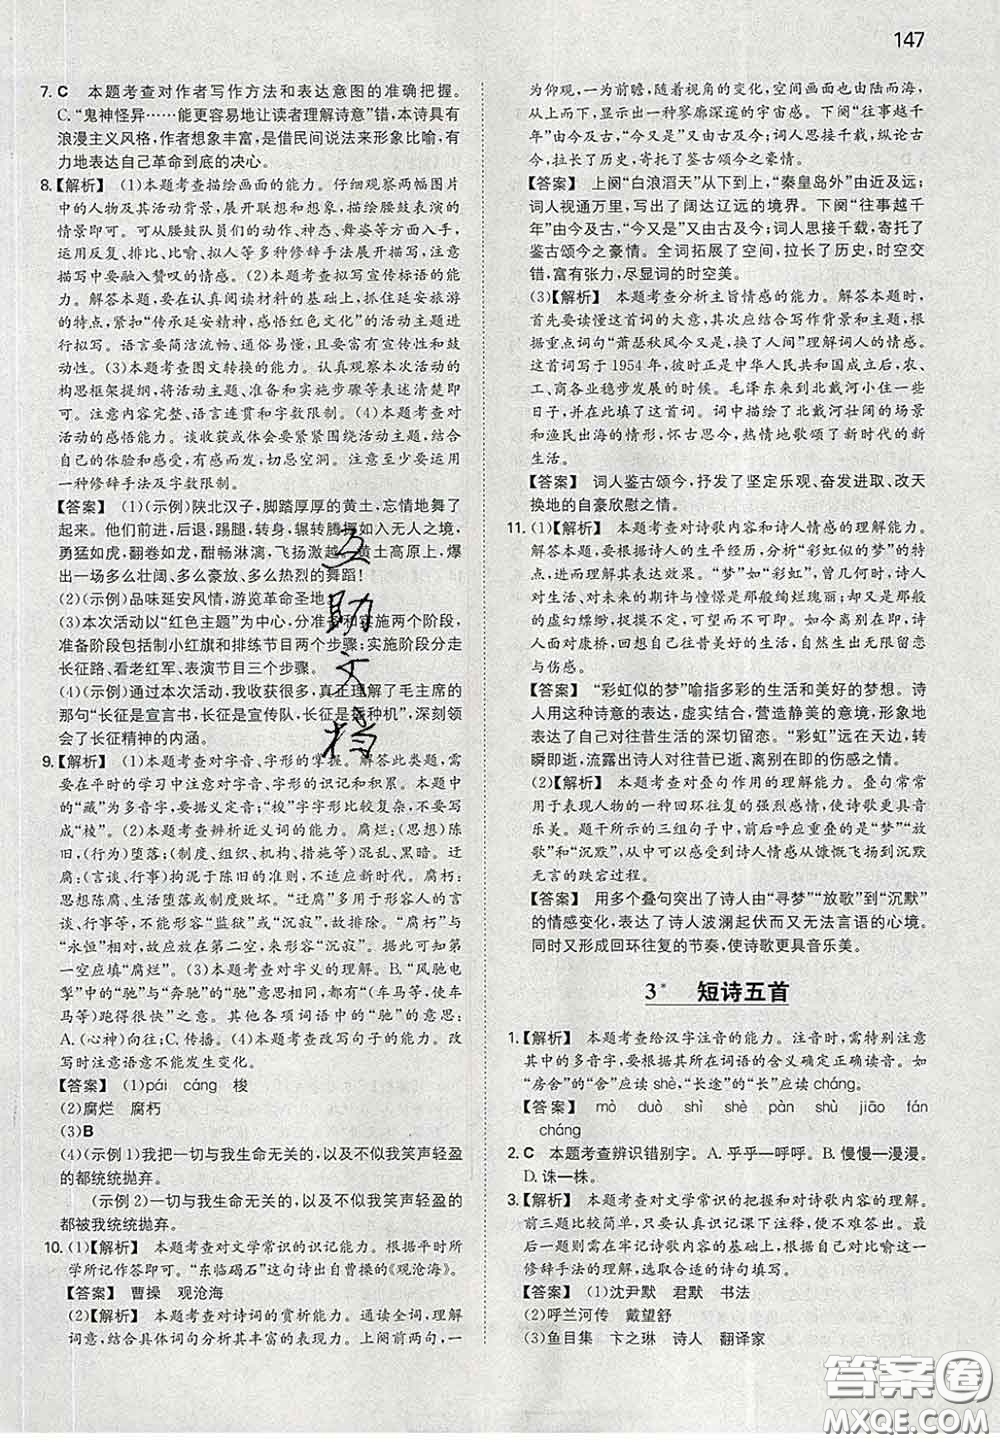 147
7. C　本题考查对作者写作方法和表达意图的准确把握。
C.“鬼神怪异……能更容易地让读者理解诗意”错，本诗具有
浪漫主义风格，作者想象丰富，是借民间说法来形象比喻，有
力地表达自己革命到底的决心。
8.【解析】　(1)本题考查描绘画面的能力。仔细观察两幅图片
中的人物及其活动背景，展开联想和想象，描绘腰鼓表演的
情景即可。可从腰鼓队员们的动作、神态、舞姿等方面入手，
运用反复、排比、比喻、拟人等多种修辞手法展开描写，注意
描写中要融入赞叹的情感。(2)本题考查拟写宣传标语的能
力。解答本题，要在认真阅读材料的基础上，抓住延安旅游
的特点，紧扣“传承延安精神，感悟红色文化”的活动主题作
答。语言要简洁流畅、通俗易懂，且要富有宣传性和鼓
动性。(3)本题考查图文转换的能力。认真观察本次活动的
构思框架提纲，将活动主题、准备和实施步骤等表述清楚即
可。注意内容完整、语言连贯和字数限制。(4)本题考查对
活动的感悟能力。谈收获或体会要紧紧围绕活动主题，结合
自己的体验和感受，有感而发，切忌空洞。注意至少要运用
一种修辞手法及字数限制。
【答案】　(1)(示例)陕北汉子，脚踏厚厚的黄土，忘情地舞了
起来。他们前进，后退，踢腿，转身，辗转腾挪如入无人之境，
勇猛如虎，翻卷如龙，酣畅淋漓，飞扬激越。黄土高原上，爆
出一场多么壮阔、多么豪放、多么热烈的舞蹈！
(2)(示例)品味延安风情，游览革命圣地。
(3)本次活动以“红色主题”为中心，分准备和实施两个阶段，
准备阶段包括制小红旗和排练节目两个步骤；实施阶段分走
长征路、看老红军、表演节目三个步骤。
(4)(示例)通过本次活动，我收获很多，真正理解了毛主席的
那句“长征是宣言书，长征是宣传队，长征是播种机”，深刻领
会了长征精神的内涵。
9.【解析】　(1)本题考查对字音、字形的掌握。解答此类题，需
要在平时的学习中注意对字音、字形的识记和积累。本题中
的“藏”为多音字，要据义定音；“梭”字字形比较复杂，不要写
成“棱”。(2)本题考查辨析近义词的能力。腐烂：(思想)陈
旧，(行为)堕落；(制度、组织、机构、措施等)混乱、黑暗。迂
腐：(言谈、行事)拘泥于陈旧的准则，不适应新时代。腐朽：
思想陈腐、生活堕落或制度败坏。“迂腐”多用于形容人的言
谈、行事等，不能形容“监狱”或“沉寂”，故排除。“腐朽”与
“永恒”相对，故应放在第二空，来形容“沉寂”。据此可知第
一空应填“腐烂”。(3)本题考查对字义的理解。B.“风驰电
掣”中的“驰”与“奔驰”的“驰”意思相同，都有“(车马等，使车
马等)跑得很快”之意。其他各项词语中的“驰”的意思：
A.(心神)向往；C.传播。(4)本题考查改写句子的能力。改
写时注意语意不能发生变化。
【答案】　(1)pái　cáng　梭
(2)腐烂　腐朽
(3)B
(4)(示例 1)我把一切与我生命无关的，以及不似我笑声轻盈
的都统统抛弃。
(示例 2)一切与我生命无关的，以及不似我笑声轻盈的
都被我统统抛弃。
10.(1)【解析】　本题考查对文学常识的识记能力。根据平时所
学所记作答即可。“东临碣石”这句诗出自曹操的《观沧海》。
【答案】　曹操　观沧海
(2)【解析】　本题考查对诗词的赏析能力。通读全词，理解
词意，结合具体词句分析其丰富的表现力。上阕前两句，一
为仰观，一为前瞻，随着视角的变化，空间由近及远，而末二
句展示给我们的是一种寥廓深邃的宇宙感。下阕“往事越千
年”由今及古，“今又是”又由古及今；词人思接千载，纵论古
今，拉长了历史，寄托了鉴古颂今之豪情。
【答案】　上阕“白浪滔天”从下到上，“秦皇岛外”由近及远；
词人视通万里，写出了阔达辽远的境界。下阕“往事越千
年”由今及古，“今又是”又由古及今；词人思接千载，寄托了
鉴古颂今之豪情。全词拓展了空间，拉长了历史，时空交
错，富有张力，尽显词的时空美。
(3)【解析】　本题考查分析主旨情感的能力。解答本题时，
首先要读懂这首词的大意，其次应结合写作背景和主题，根
据重点词句“萧瑟秋风今又是，换了人间”理解词人的情感。
这首词写于 1954 年，时处正是中华人民共和国成立后，农、
工、商各业稳步发展的时候。毛泽东来到北戴河小住一些
日子，并在此填了这首词。词中描绘了北戴河壮阔的场景
和渔民出海的情形，怀古思今，热情地歌颂了新时代的新
生活。
【答案】　词人鉴古颂今，抒发了坚定乐观、奋发进取、改天
换地的自豪欣慰之情。
11.(1)【解析】　本题考查对诗歌内容和诗人情感的理解能力。
解答本题，要根据诗人的生平经历，分析“彩虹似的梦”的内
涵，进而理解其表达效果。“梦”如“彩虹”，曾几何时，诗人对
生活、对未来的期待与憧憬是那般绚烂瑰丽；却又是那般
的虚幻缥缈，捉摸不定，转瞬即逝，一切成空。而今，诗人
面对康桥，回想自己往昔美好的生活，自然生出无限留恋
与伤感。
【答案】　“彩虹似的梦”喻指多彩的生活和美好的梦想。诗
人用这种诗意的表达，虚实结合，营造静美的意境，形象地
表达了自己对往昔生活的深切留恋。“彩虹”在现实中，转
瞬即逝，流露出诗人对美景已逝、离别在即的伤感情绪。
(2)【解析】　本题考查对叠句作用的理解能力。叠句常常
用于表现人物的一种回环往复的强烈感情，使诗歌更具音
乐美。题干所示的三组句子中，前后呼应重叠的是“梦”“放
歌”和“沉默”，从中可以感受到诗人情感从慷慨飞扬到沉默
无言的跌宕过程。
【答案】　用多个叠句突出了诗人由“寻梦”“放歌”到“沉默”
的情感变化，表达了诗人波澜起伏而又无法言语的心境。
同时又形成回环往复的节奏，使诗歌更具音乐美。
3*　短诗五首
1.【解析】　本题考查给汉字注音的能力。注音时，需特别注意
其中的多音字，要根据其所在词语的含义确定正确读音。如
“房舍”的“舍”应读 shè，“长途”的“长”应读 cháng。
【答案】　mò　duò　shì　shè　pàn　shù　jiāo　fán
cháng
2. C　本题考查辨识错别字。A. 乎乎—呼呼。B. 慢慢—漫漫。
D. 诛—株。
3.【解析】　本题考查对文学常识的把握和对诗歌内容的理解。
前三题比较简单，只要认真识记课下注释，便不难答出。最
后一题则需在牢记诗歌内容的基础上，根据对主要意象的
修辞手法的理解，选取合适的诗句填写。
【答案】　(1)沈尹默　君默　书法
(2)呼兰河传　戴望舒
(3)鱼目集　卞之琳　诗人　翻译家
互助文档
答案圈
MXQE.COM